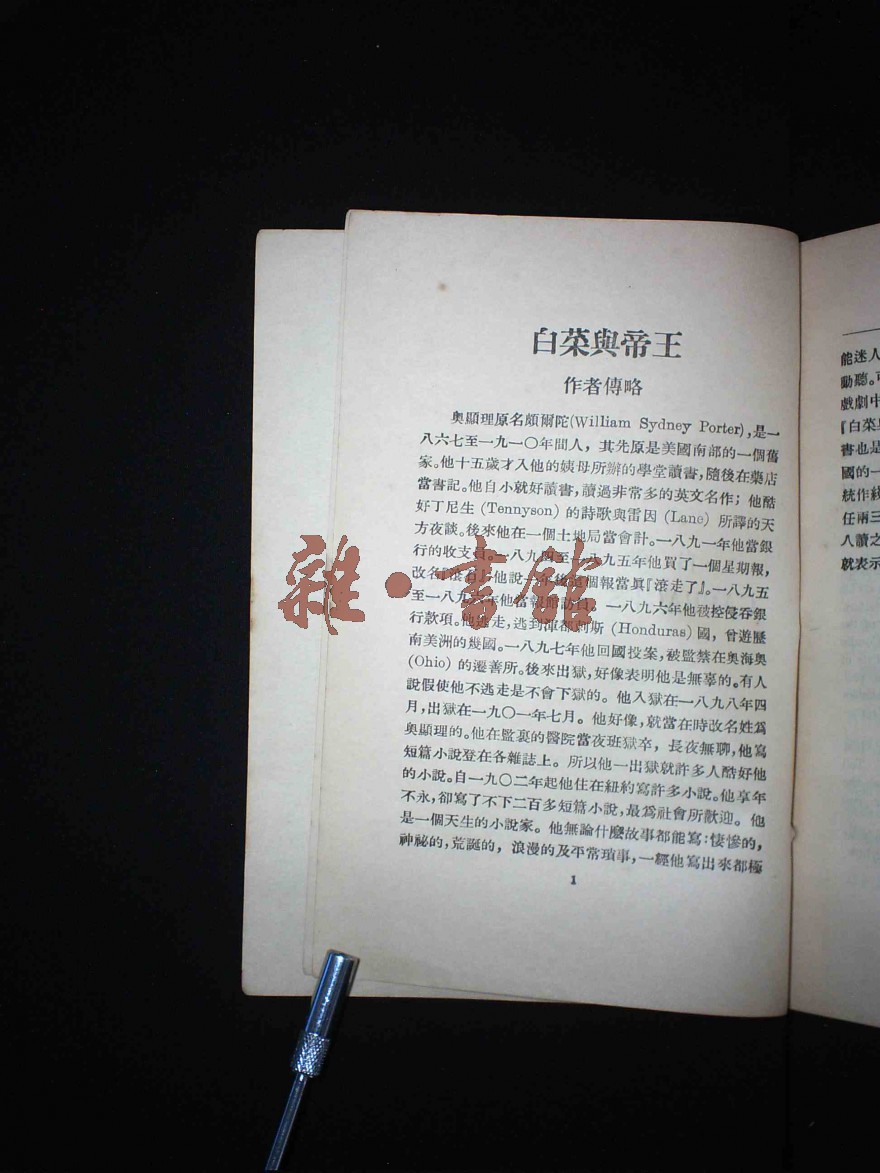 白菜與帝王
作者傳略
奧顯理原名頗爾陀(William Sydney Porter),是一
八六七至一九一〇年間人，其先原是美國南部的一個舊
家。他十五歲才入他的姨母所辦的學堂讀書，隨後在藥店
當書記。他自小就好讀書，讀過非常多的英文名作；他酷
好丁尼生 (Tennyson) 的詩歌與雷因 (Lane) 所譯的天
方夜談。後來他在一個土地局當會計。一八九一年他當銀
行的收支員。一八九四至一八九五年他買了一個星期報，
改名『滾石』他說一年後這個報當眞『滾走了』。一八九五
至一八九六年他當報館訪員。一八九六年他被控侵吞銀
行款項。他逃走，逃到渾都剌斯 (Honduras) 國，曾遊歷
南美洲的幾國。一八九七年他回國投案，被監禁在奧海奧
(Ohio) 的遷善所。後來出獄，好像表明他是無辜的。有人
說假使他不逃走是不會下獄的。他入獄在一八九八年四
月，出獄在一九〇一年七月。他好像，就當在時改名姓爲
奧顯理的。他在監裏的醫院當夜班獄卒，長夜無聊，他寫
短篇小說登在各雜誌上。所以他一出獄就許多人酷好他
的小說。自一九〇二年起他住在紐約寫許多小說。他享年
不永，卻寫了不下二百多短篇小說，最爲社會所歡迎。他
是一個天生的小說家。他無論什麼故事都能寫：悽慘的，
神祕的，荒誕的，浪漫的及平常瑣事，一經他寫出來都極
1
能迷人
動聽。
戲劇中
『白菜
書也是
國的一
統作綫
任兩三
人讀之
就表示
雜·書館